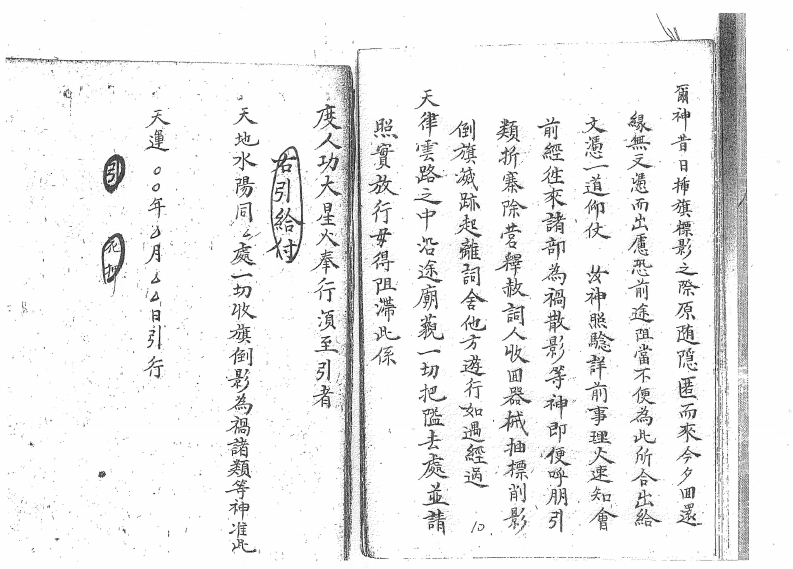 爾神昔日揷旗標影之際原随隐匿而來今夕回還
緣無文憑而出慮恐前途阻當不便為此所合出給
文憑一道仰仗 汝神照驗詳前事理火速知會
前經徃來諸部為禍散影等神即便呼朋引
類折寨除营釋赦詞人收回器械抽標削影
倒旗滅跡起離詞舍他方遊行如遇經過
天律雲路之中沿途廟藐一切把隘去處並請
照實放行毋得阻滯此係
10
度人功大星火奉行湏至引者
右引給付
天地水陽同々處一切收旗倒影為禍諸類等神准此
天運 〇〇年厶月厶厶日引行
引
花押